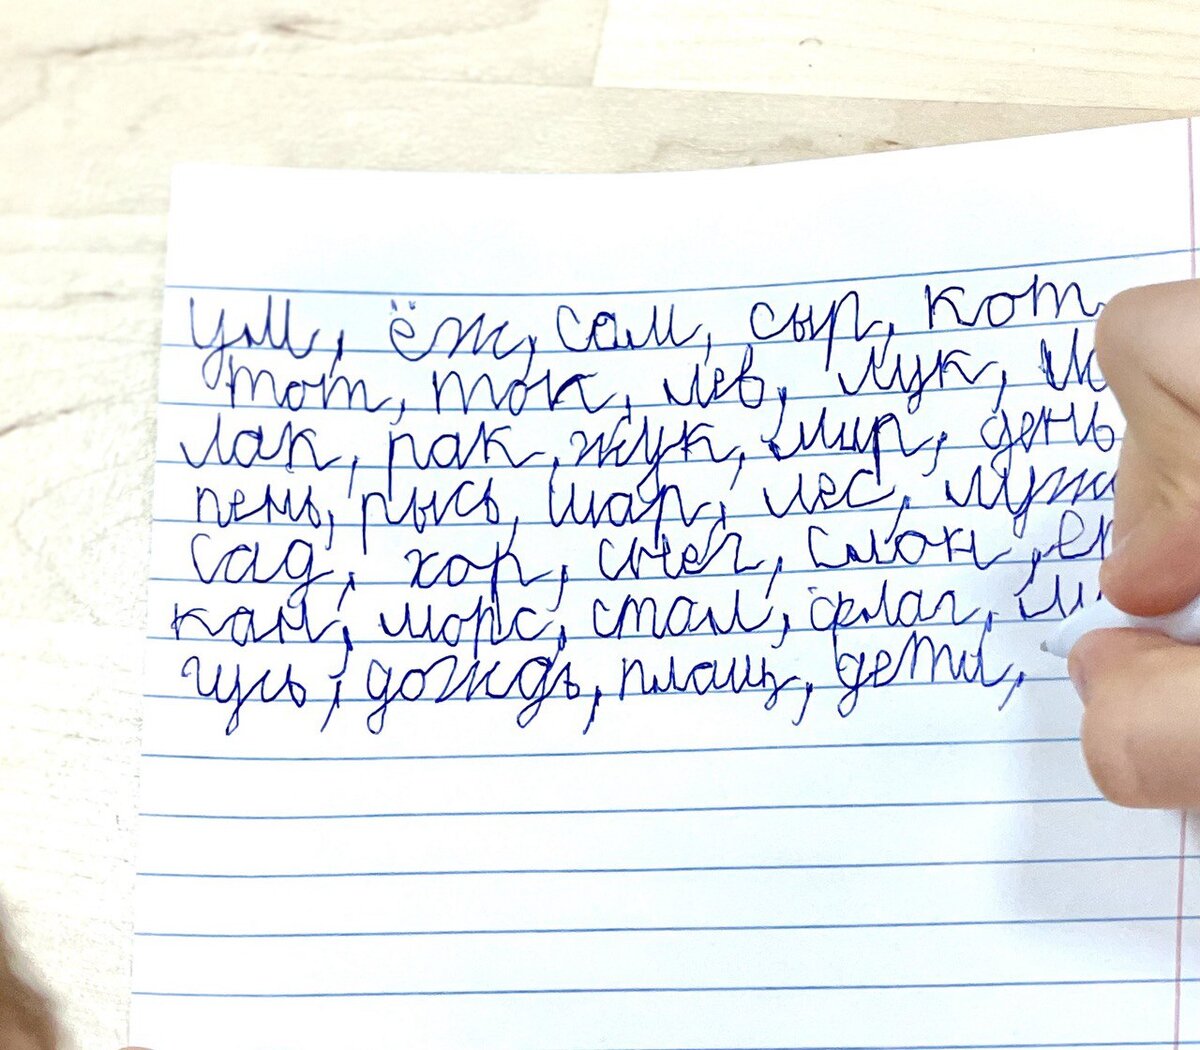 ум, ёж, сом, сыр, кот
тот, ток, лев, лук,
лак, рак, жук, мир, день
пень, рысь, шар, лес,
сад, хор, снег, слон,
морс, стол, флаг,
гусь, дождь, плащ, дети,